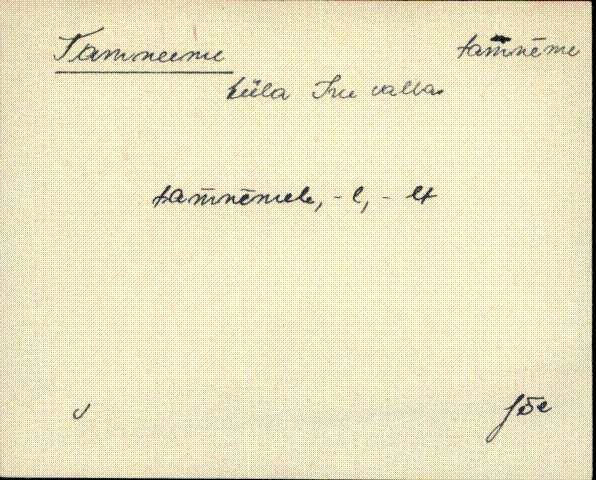 Tammneeme tam̄nēme
küla Iru vallas
tam̄nēmele, -l, -lt
Jõe